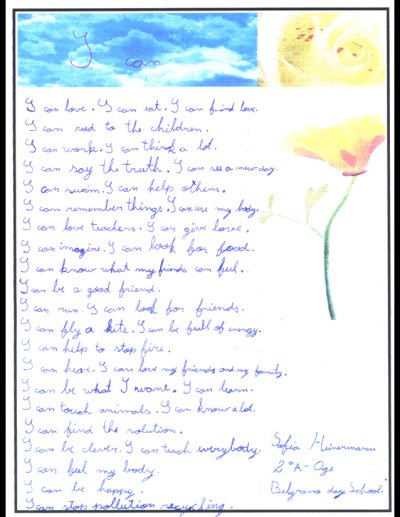 I can
I can love. I can eat. I can find love.
I can read to the children.
I can work. I can think a lot.
I can say the truth. I can see a new day.
I can swim. I can help others.
I can remember things. I can use my body.
I can love teachers. I can give love.
I can imagine. I can look for food.
I can know what my friends can feel.
I can be a good friend.
I can run. I can look for friends.
I can fly a kite. I can be full of energy.
I can help to stop fire.
I can hear. I can love my friends and my family.
I can be what I want. I can learn.
I can touch animals. I can know a lot.
I can find the solution.
I can be clever. I can teach everybody.
I can feel my body.
I can be happy.
I can stop pollution recycling.
Sofia
2°A-
Belgrano day School.